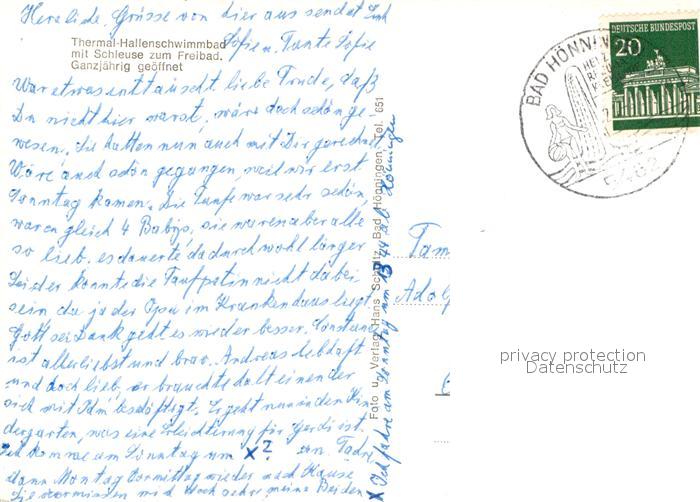 Herzliche Grüsse von hier aus sendet Euch
Sofie u. Tante Sofie
Thermal-Hallenschwimmbad
mit Schleuse zum Freibad.
Ganzjährig geöffnet
War etwas enttäuscht liebe Trude, daß
Du nicht hier warst, wäre doch schön ge-
wesen. Sie hatten nun auch mit Dir gerechnet.
Wäre auch schön gegangen, weil wir erst
Sonntag kamen. Die Taufe war sehr schön,
waren gleich 4 Babys, sie waren aber alle
so lieb. es dauerte dadurch wohl länger
Leider konnte die Taufpatin nicht dabei
sein, da ja der Opa im Krankenhaus liegt,
Gott sei Dank geht es wieder besser.
ist allerliebst und brav. Andreas lebhaft
und doch lieb, er brauchte halt einen der
sich mit Ihm beschäftigt. Er geht nun in den Kin-
dergarten, was eine Erleichterung für Gerdi ist.
komme am Sonntag um x2 an. Fahre
dann Montag Vormittag wieder nach Hause
Sie vermissen mich doch sehr, meine Beiden
x Ich fahre am Sonntag um 13 44 ab Hönningen
Foto u. Verlag Hans Schmitz, Bad Hönningen, Tel. 651
DEUTSCHE BUNDESPOST
20
BAD HÖNNIN
5462
Fam
Adol
privacy protection
Datenschutz